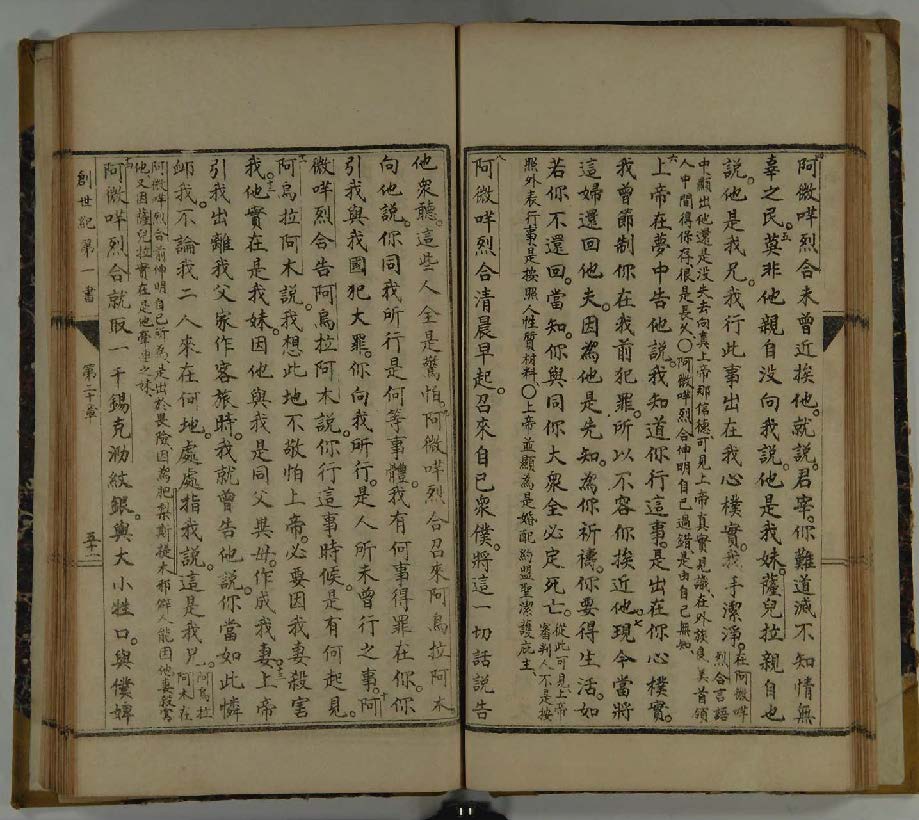 四阿微咩烈合未曾近挨他。就說。君宰。你難道滅不知情無
辜之民。五莫非他親自没向我說。他是我妹。薩兒拉親自也
說。他是我兄。我行此事出在我心樸實。我手潔淨。在阿微咩烈合言語
中顯出他還是没失去向真上帝那信德可見上帝真實見識在外族良美首領
人中間得保存很是長久〇阿微咩烈合伸明自己過錯是由自己無知
六上帝在夢中告他說。我知道你行這事。是出在你心樸實。
我曾節制你在我前犯罪。所以不容你挨近他。七現今當將
這婦還回他夫。因為他是先知。為你祈禱。你要得生活。如
若你不還回。當知。你與同你大衆全必定死亡。從此可見上帝審判人不是按
照外表行事是按照人性質材料〇上帝並顯為是婚配約盟聖潔護庇主
八阿微咩烈合清晨早起。召來自己衆僕。將這一切話說告
他衆聽。這些人全是驚怕。九阿微咩烈合召來阿烏拉阿木
向他說。你同我所行是何等事體。我有何事得罪在你。你
引我與我國犯大罪。你向我所行。是人所未曾行之事。十阿
微咩烈合告阿烏拉阿木說。你行這事時候。是有何起見。
十一阿烏拉阿木說。我想此地不敬怕上帝。必要因我妻殺害
我。十二他實在是我妹。因他與我是同父異母。作成我妻。十三上帝
引我出離我父家作客旅時。我就曾告他說。你當如此憐
卹我。不論我二人來在何地。處處指我說。這是我兄。阿烏拉阿木在
阿微咩烈合前伸明自己所為是出於畏險因為肥利斯提木邪僻人能因他妻殺害
他又因薩兒拉實在是他聲連之妹
十四阿微咩烈合就取一千錫克泐紋銀。與大小牲口。與僕婢
創世紀第一書
第二十章
五十二